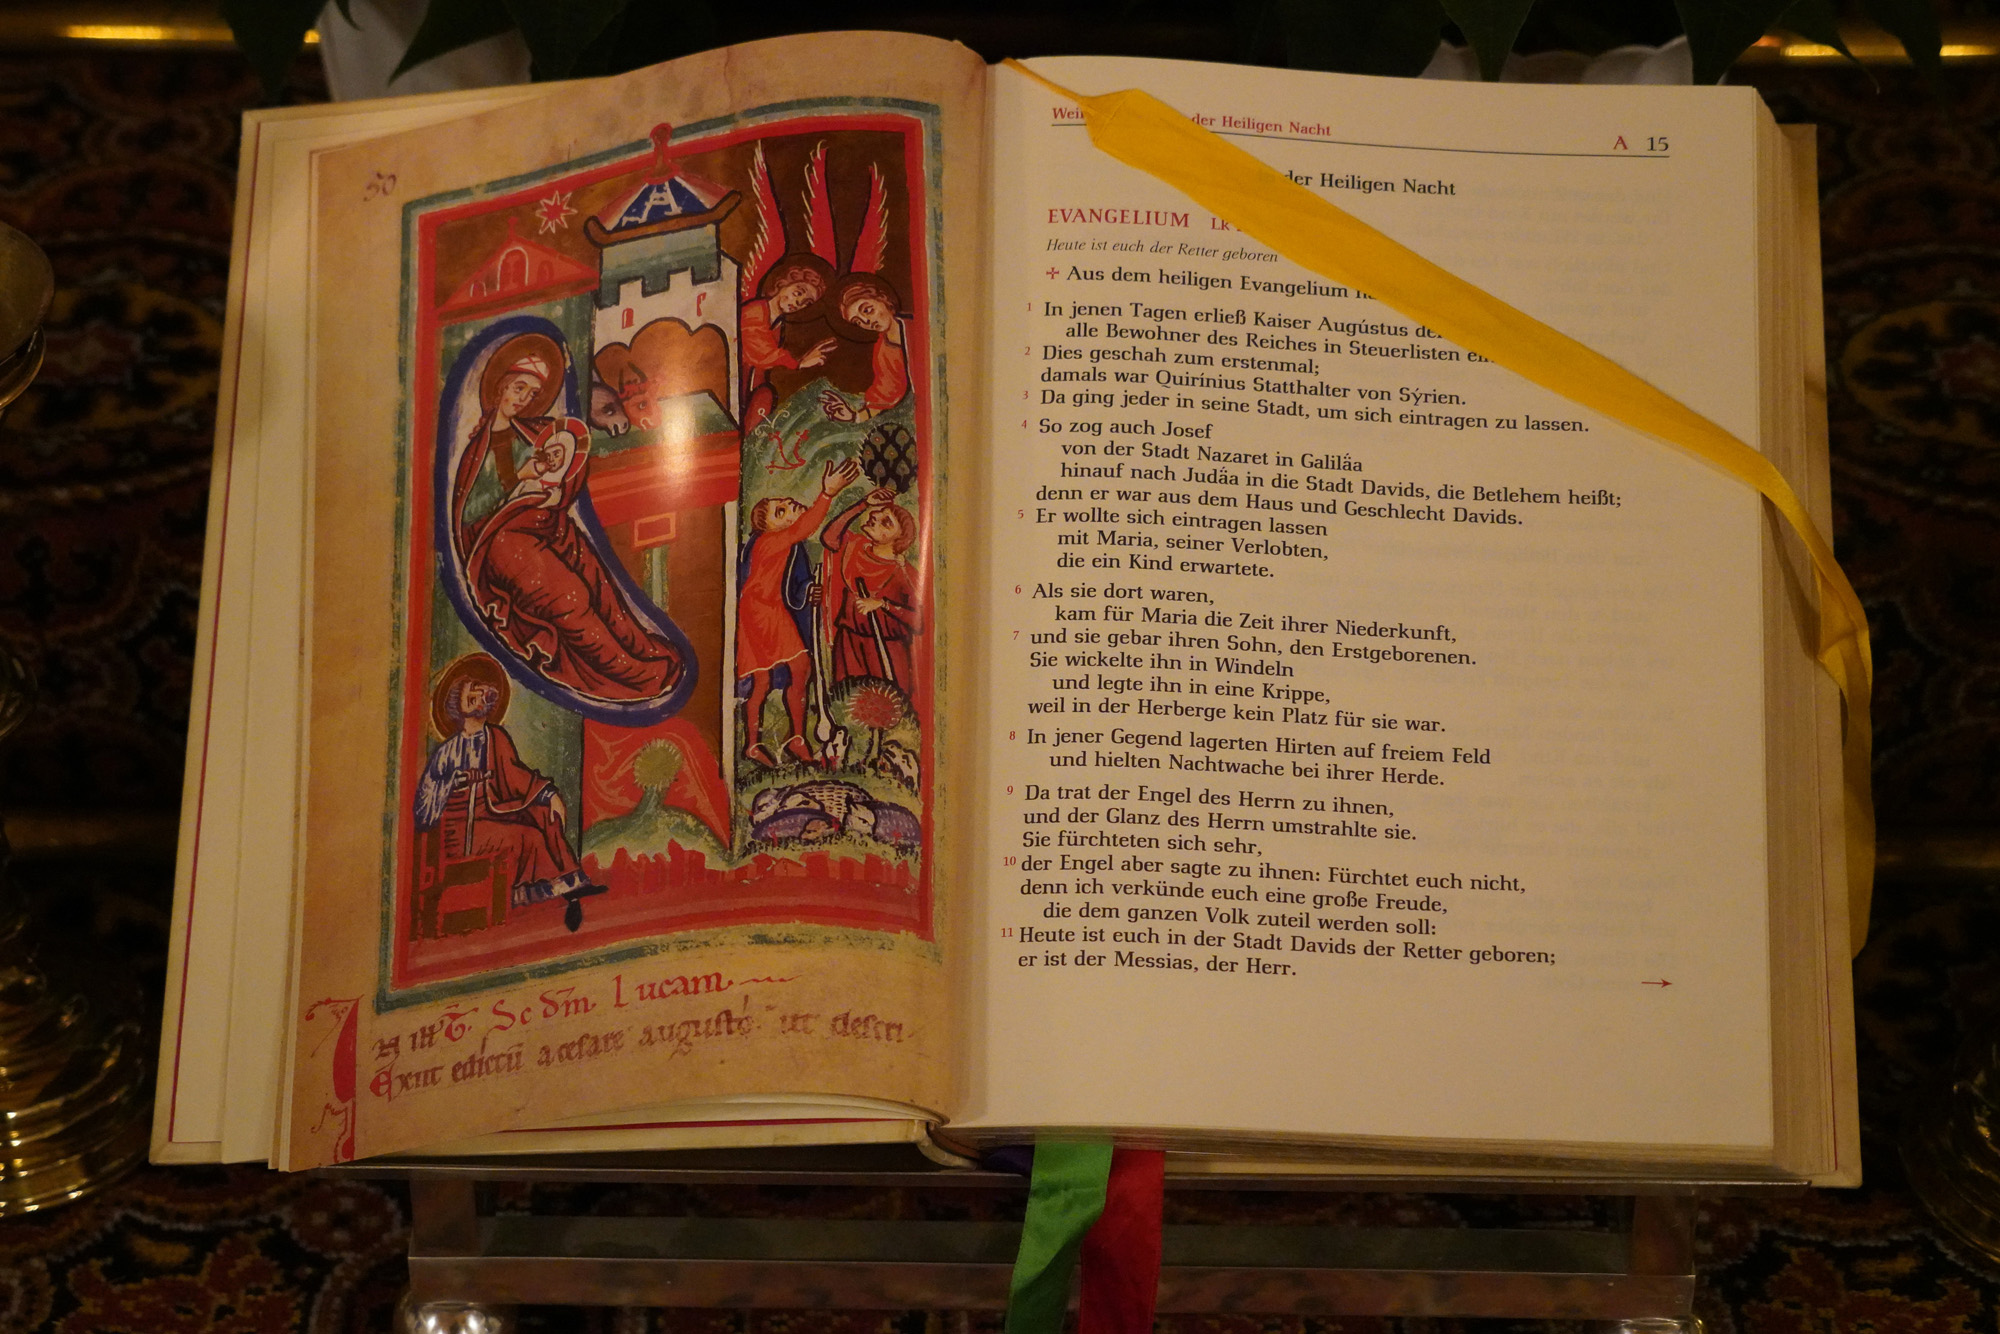 50
Sc dm Lucam
Exiit edictū a cesare augusto ut descri-
der Heiligen Nacht
A 15
der Heiligen Nacht
EVANGELIUM Lk
Heute ist euch der Retter geboren
+ Aus dem heiligen Evangelium
1 In jenen Tagen erließ Kaiser Augústus
alle Bewohner des Reiches in Steuerlisten
2 Dies geschah zum erstenmal;
damals war Quirínius Statthalter von Sýrien.
3 Da ging jeder in seine Stadt, um sich eintragen zu lassen.
4 So zog auch Josef
von der Stadt Nazaret in Galiläa
hinauf nach Judäa in die Stadt Davids, die Betlehem heißt;
denn er war aus dem Haus und Geschlecht Davids.
5 Er wollte sich eintragen lassen
mit Maria, seiner Verlobten,
die ein Kind erwartete.
6 Als sie dort waren,
kam für Maria die Zeit ihrer Niederkunft,
7 und sie gebar ihren Sohn, den Erstgeborenen.
Sie wickelte ihn in Windeln
und legte ihn in eine Krippe,
weil in der Herberge kein Platz für sie war.
8 In jener Gegend lagerten Hirten auf freiem Feld
und hielten Nachtwache bei ihrer Herde.
9 Da trat der Engel des Herrn zu ihnen,
und der Glanz des Herrn umstrahlte sie.
Sie fürchteten sich sehr,
10 der Engel aber sagte zu ihnen: Fürchtet euch nicht,
denn ich verkünde euch eine große Freude,
die dem ganzen Volk zuteil werden soll:
11 Heute ist euch in der Stadt Davids der Retter geboren;
er ist der Messias, der Herr.
→